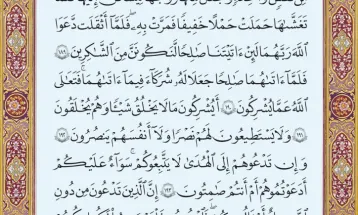 تَغَشَّىٰهَا حَمَلَتْ حَمْلًا خَفِيفًا فَمَرَّتْ بِهِۦ ۖ فَلَمَّآ أَثْقَلَت دَّعَوَا
ٱللَّهَ رَبَّهُمَا لَئِنْ ءَاتَيْتَنَا صَٰلِحًا لَّنَكُونَنَّ مِنَ ٱلشَّٰكِرِينَ ١٨٩
فَلَمَّآ ءَاتَىٰهُمَا صَٰلِحًا جَعَلَا لَهُۥ شُرَكَآءَ فِيمَآ ءَاتَىٰهُمَا ۚ فَتَعَٰلَى
ٱللَّهُ عَمَّا يُشْرِكُونَ ١٩٠ أَيُشْرِكُونَ مَا لَا يَخْلُقُ شَيْـًٔا وَهُمْ يُخْلَقُونَ
١٩١ وَلَا يَسْتَطِيعُونَ لَهُمْ نَصْرًا وَلَآ أَنفُسَهُمْ يَنصُرُونَ ١٩٢
وَإِن تَدْعُوهُمْ إِلَى ٱلْهُدَىٰ لَا يَتَّبِعُوكُمْ ۚ سَوَآءٌ عَلَيْكُمْ
أَدَعَوْتُمُوهُمْ أَمْ أَنتُمْ صَٰمِتُونَ ١٩٣ إِنَّ ٱلَّذِينَ تَدْعُونَ مِن دُونِ